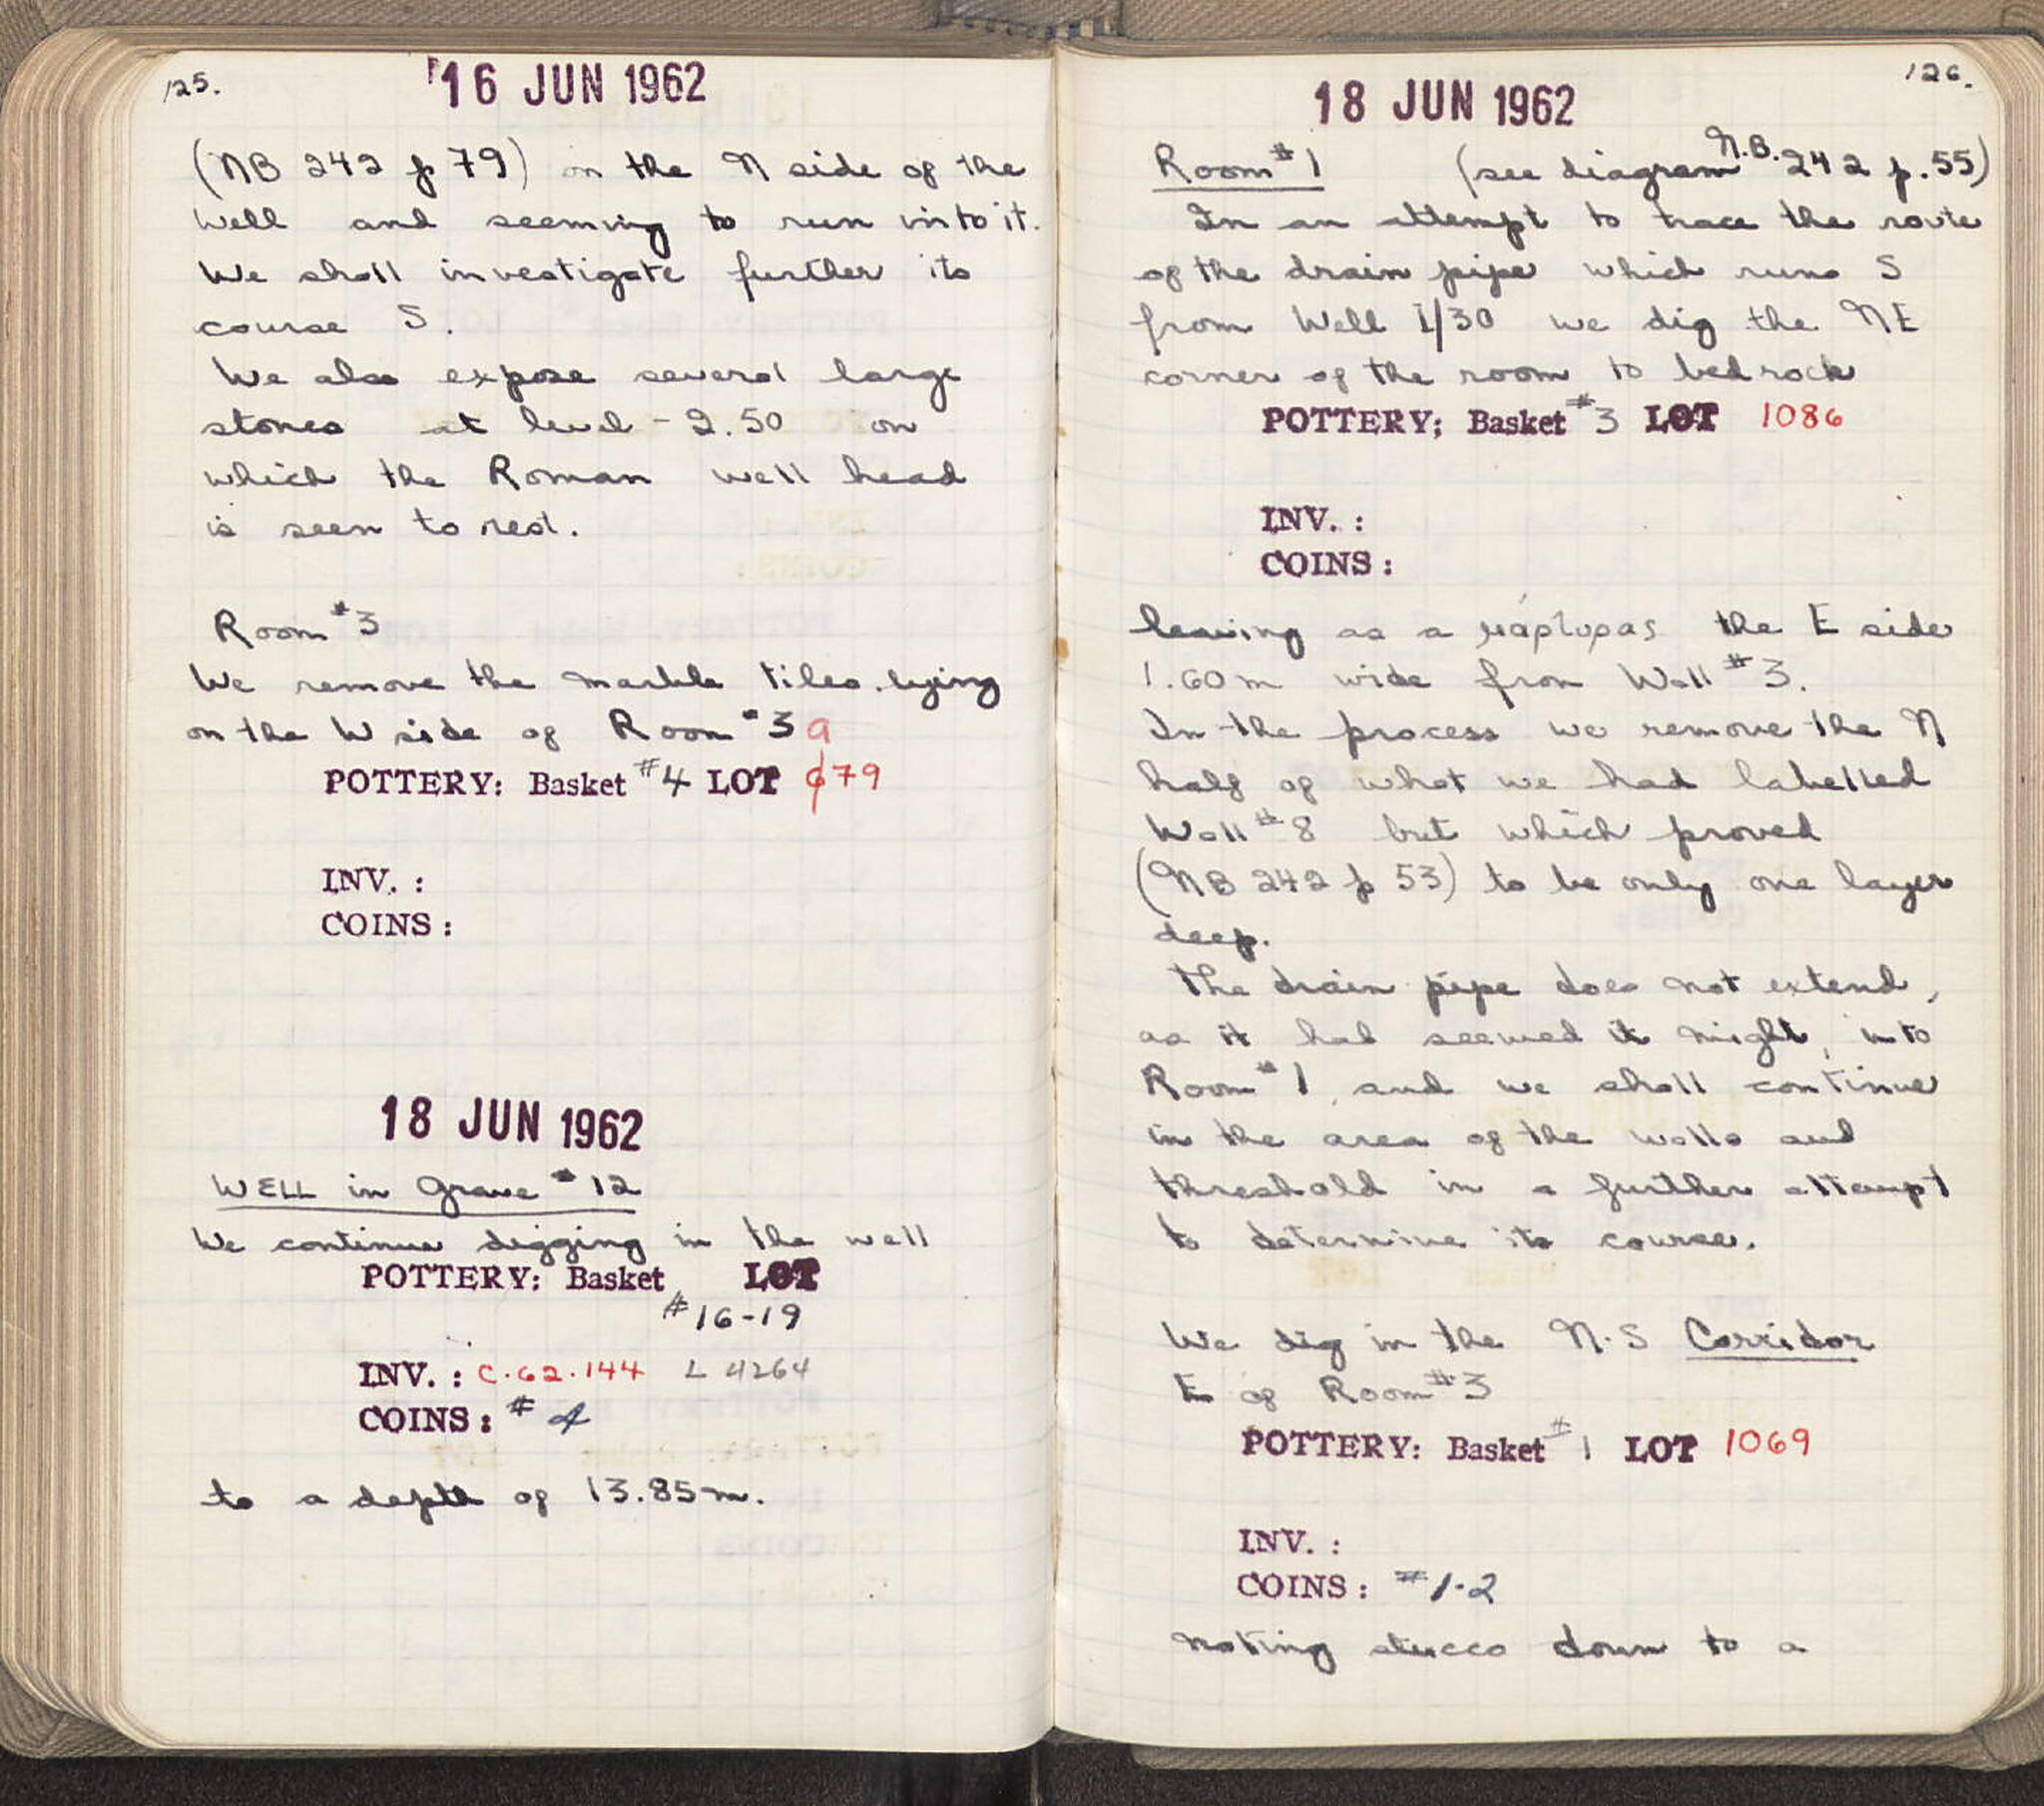 125.
16 JUN 1962
(NB 242 p 79) on the N side of the
well and seeming to run into it.
We shall investigate further its
course S.
We also expose several large
stones at level -2.50 on
which the Roman well head
is seen to rest.
Room #3
We remove the marble tiles lying
on the W side of Room #3 a
POTTERY: Basket #4 LOT 679
INV. :
COINS :
18 JUN 1962
WELL in Grave #12
We continue digging in the well
POTTERY: Basket LOT
#16-19
INV. : C.62.144 L 4264
COINS : #4
to a depth of 13.85m.
126.
18 JUN 1962
Room #1 (see diagram N.B. 242 p.55)
In an attempt to trace the route
of the drain pipe which runs S
from Well I/30 we dig the NE
corner of the room to bedrock
POTTERY; Basket #3 LOT 1086
INV. :
COINS :
leaving as a μάρτυρας the E side
1.60m wide from Wall #3.
In the process we remove the N
half of what we had labelled
Wall #8 but which proved
(NB 242 p 53) to be only one layer
deep.
The drain pipe does not extend,
as it had seemed it might, into
Room #1, and we shall continue
in the area of the walls and
threshold in a further attempt
to determine its course.
We dig in the N-S Corridor
E of Room #3
POTTERY: Basket #1 LOT 1069
INV. :
COINS : #1-2
noting stucco down to a